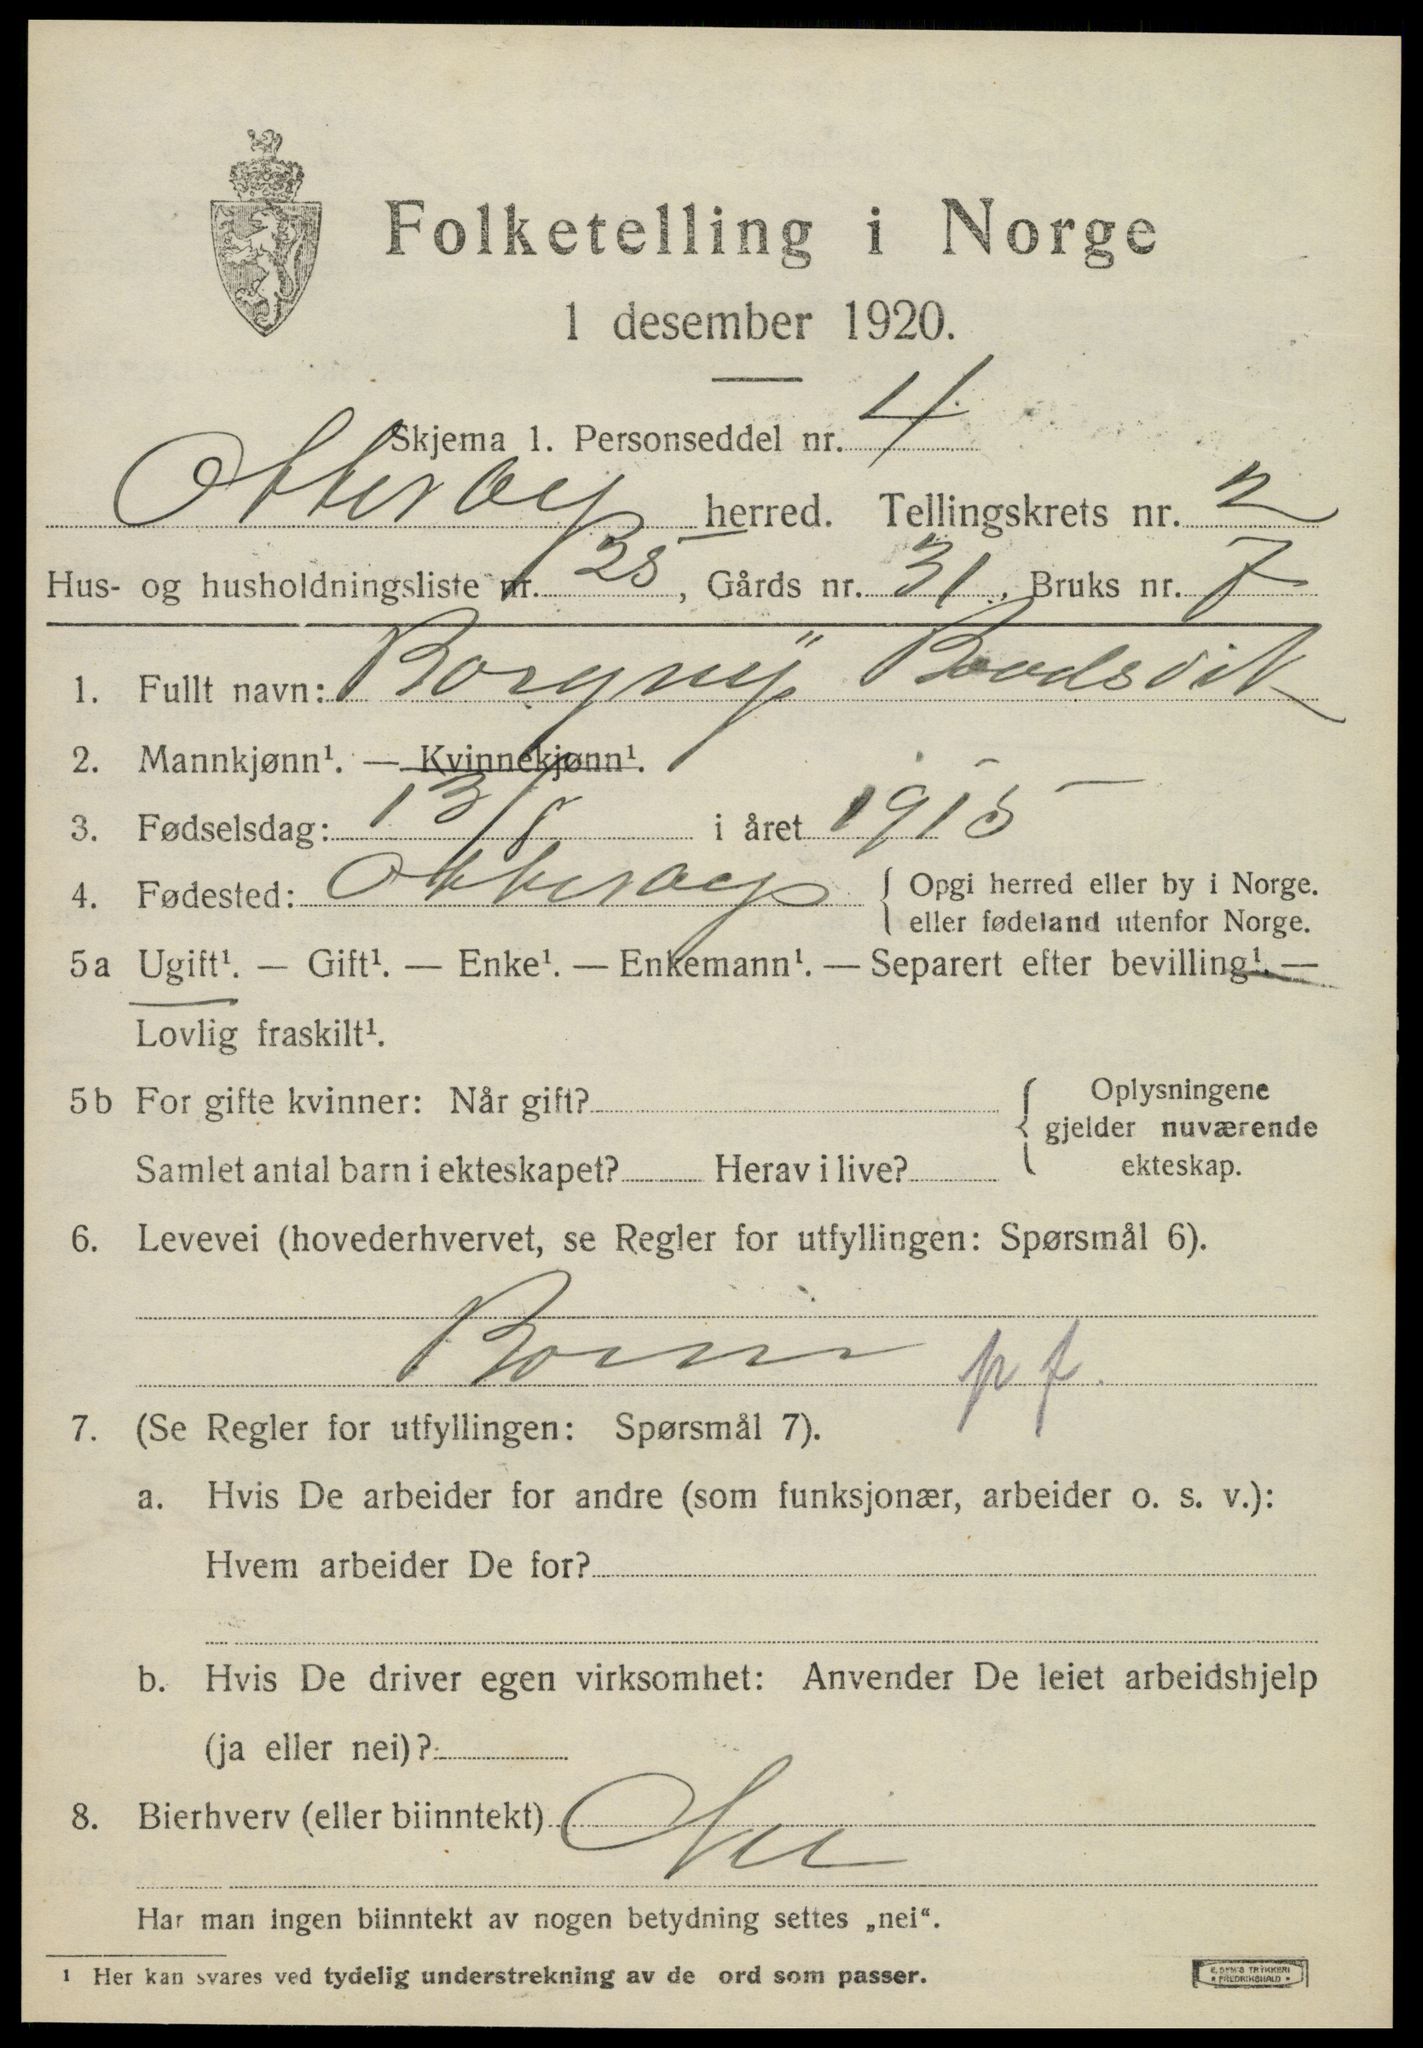 Folketelling i Norge
1 desember 1920.
Skjema 1. Personseddel nr. 4
Otterøy herred. Tellingskrets nr. 2
Hus- og husholdningsliste nr. 35, Gårds nr. 31, Bruks nr. 7
1. Fullt navn: Borgny Baadsvik
2. Mannkjønn¹. — Kvinnekjønn¹.
3. Fødselsdag: 13/8 i året 1915
4. Fødested: Otterøy { Opgi herred eller by i Norge.
eller fødeland utenfor Norge.
5a Ugift¹. — Gift¹. — Enke¹. — Enkemann¹. — Separert efter bevilling¹. —
Lovlig fraskilt¹.
5b For gifte kvinner: Når gift? { Oplysningene
gjelder nuværende
Samlet antal barn i ekteskapet? Herav i live? ekteskap.
6. Levevei (hovederhvervet, se Regler for utfyllingen: Spørsmål 6).
p f.
7. (Se Regler for utfyllingen: Spørsmål 7).
a. Hvis De arbeider for andre (som funksjonær, arbeider o. s. v.):
Hvem arbeider De for?
b. Hvis De driver egen virksomhet: Anvender De leiet arbeidshjelp
(ja eller nei)?
8. Bierhverv (eller biinntekt) Nei
Har man ingen biinntekt av nogen betydning settes „nei“.
¹ Her kan svares ved tydelig understrekning av de ord som passer.
E. SEM'S TRYKKERI
FREDRIKSHALD